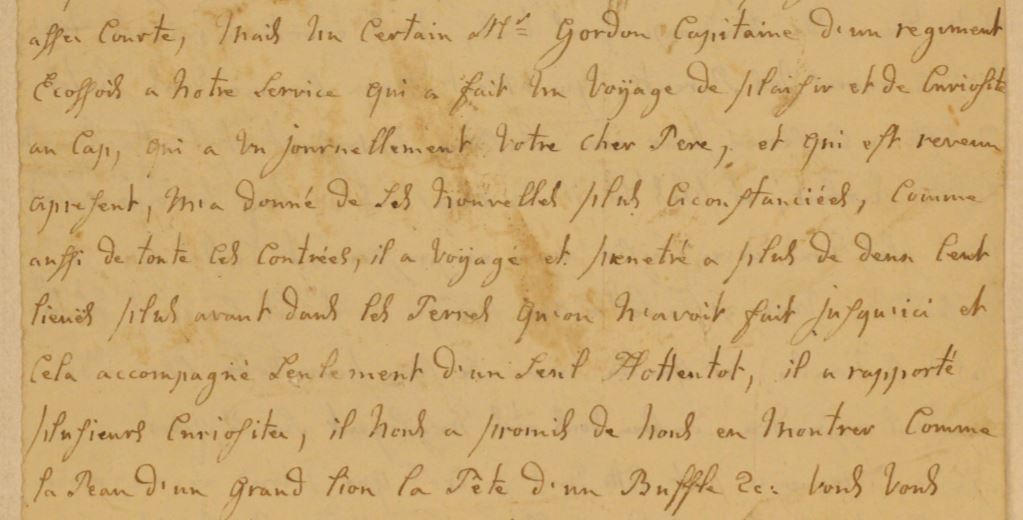 assez Courte, Mais Un Certain Mr Gordon Capitaine d'un regiment
Ecossois a Notre Service qui a fait Un Voyage de plaisir et de Curiosité
au Cap, qui a Vu journellement Votre cher Pere, et qui est revenu
apresent, M'a donné de Ses Nouvelles plus Ciconstanciées, Comme
aussi de toute Ces Contrées, il a Voyagé et penetré a plus de deux Cent
lieues plus avant dans les Terres qu'on N'avoit fait jusqu'ici et
Cela accompagné Seulement d'un Seul Hottentot, il a rapporté
plusieurs Curiosites, il Nous a promis de Nous en Montrer Comme
la Peau d'un grand lion la Tête d'un Buffle &c: Vous Vous